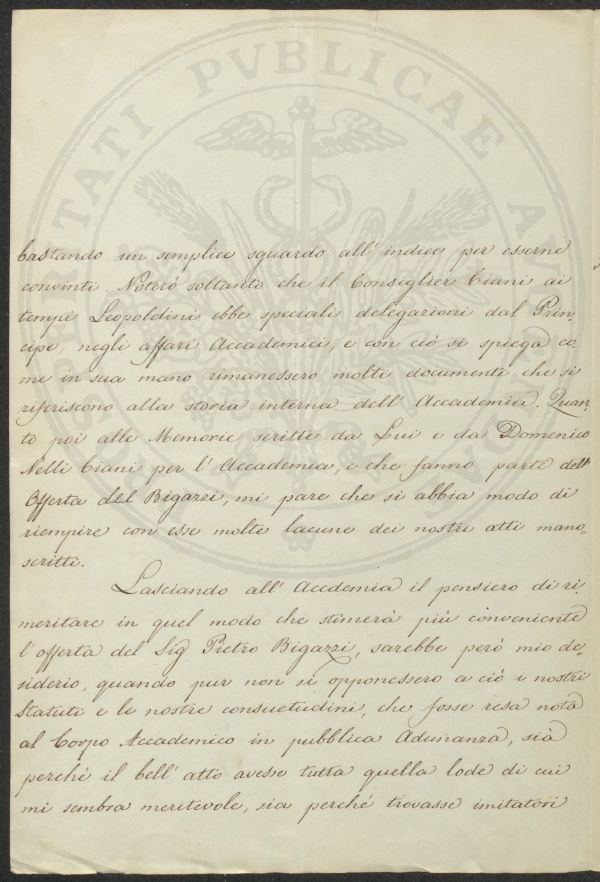 PROSPERITATI PVBLICAE AVGENDAE
bastando un semplice sguardo all' indice per esserne
convinti. Noterò soltanto che il Consiglier Ciani ai
tempi Leopoldini ebbe speciali delegazioni dal Prin-
cipe negli affari Accademici, e con ciò si spiega co-
me in sua mano rimanessero molti documenti che si
riferiscono alla storia interna dell' Accademia. Quan-
to poi alle Memorie scritte da Lui e da Domenico
Nelli Ciani per l' Accademia, e che fanno parte dell'
Offerta del Bigazzi, mi pare che si abbia modo di
riempire con esse molte lacune dei nostri atti mano-
scritti.
Lasciando all' Accdemia il pensiero di ri-
meritare in quel modo che stimerà più conveniente
l' offerta del Sig Pietro Bigazzi, sarebbe però mio de-
siderio, quando pur non si opponessero a ciò i nostri
Statuti e le nostre consuetudini, che fosse resa nota
al Corpo Accademico in pubblica Adunanza, sià
perché il bell' atto avesse tutta quella lode di cui
mi sembra meritevole, sia perché trovasse imitatori